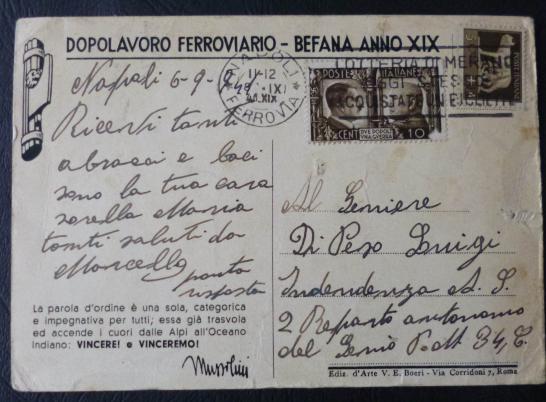 DOPOLAVORO FERROVIARIO - BEFANA ANNO XIX
NAPOLI
FERROVIA
11-12
XIX
LOTTERIA DI MERANO
OGGI STESSO
ACQUISTATE UN BIGLIETTO
POSTE ITALIANE
CENT 10
DVE POPOLI
VNA GVERRA
Napoli 6-9-
Ricevi tanti
abracci e baci
sono la tua cara
sorella Maria
tanti saluti da
Marcello
pronta
risposta
Al Geniere
Di Peso Luigi
Indendenza A. S.
2 Reparto autonomo
del Genio Post 34, C.
La parola d'ordine è una sola, categorica
e impegnativa per tutti; essa già trasvola
ed accende i cuori dalle Alpi all'Oceano
Indiano: VINCERE! e VINCEREMO!
Mussolini
Ediz. d'Arte V. E. Boeri - Via Corridoni 7, Roma